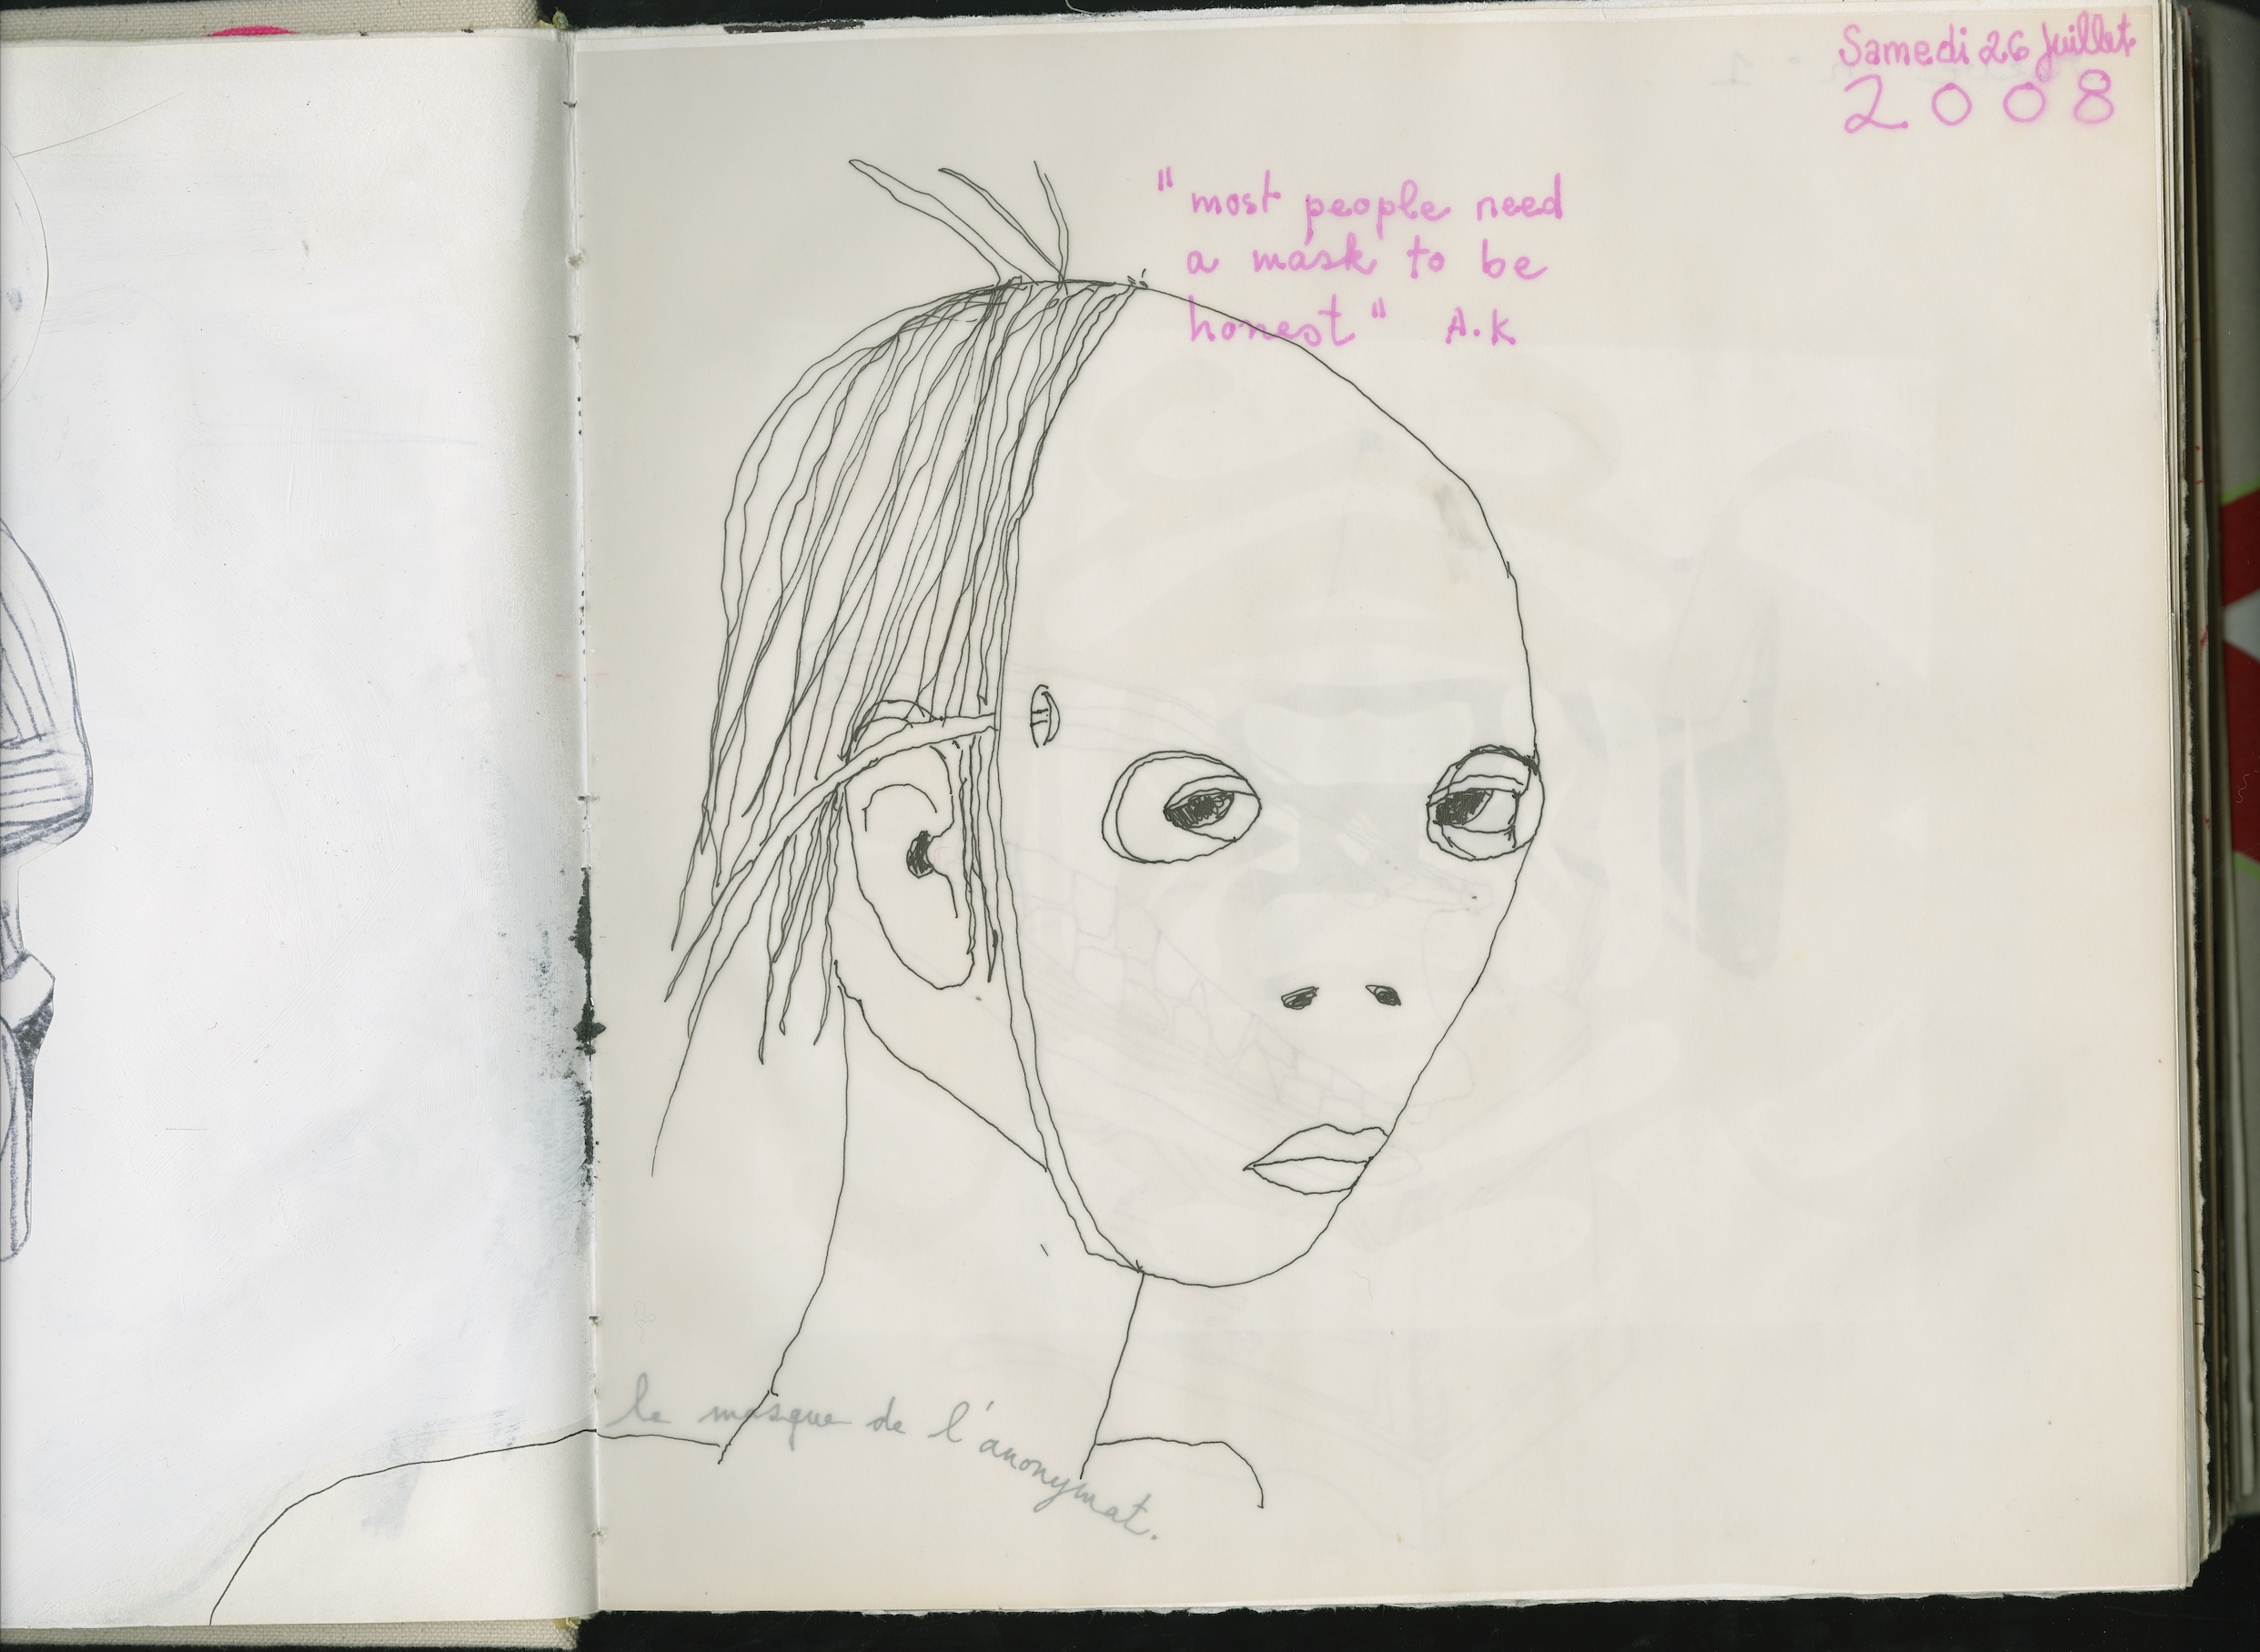 Samedi 26 Juillet
2008
"most people need
a mask to be
honest" A.K
le masque de l'anonymat.